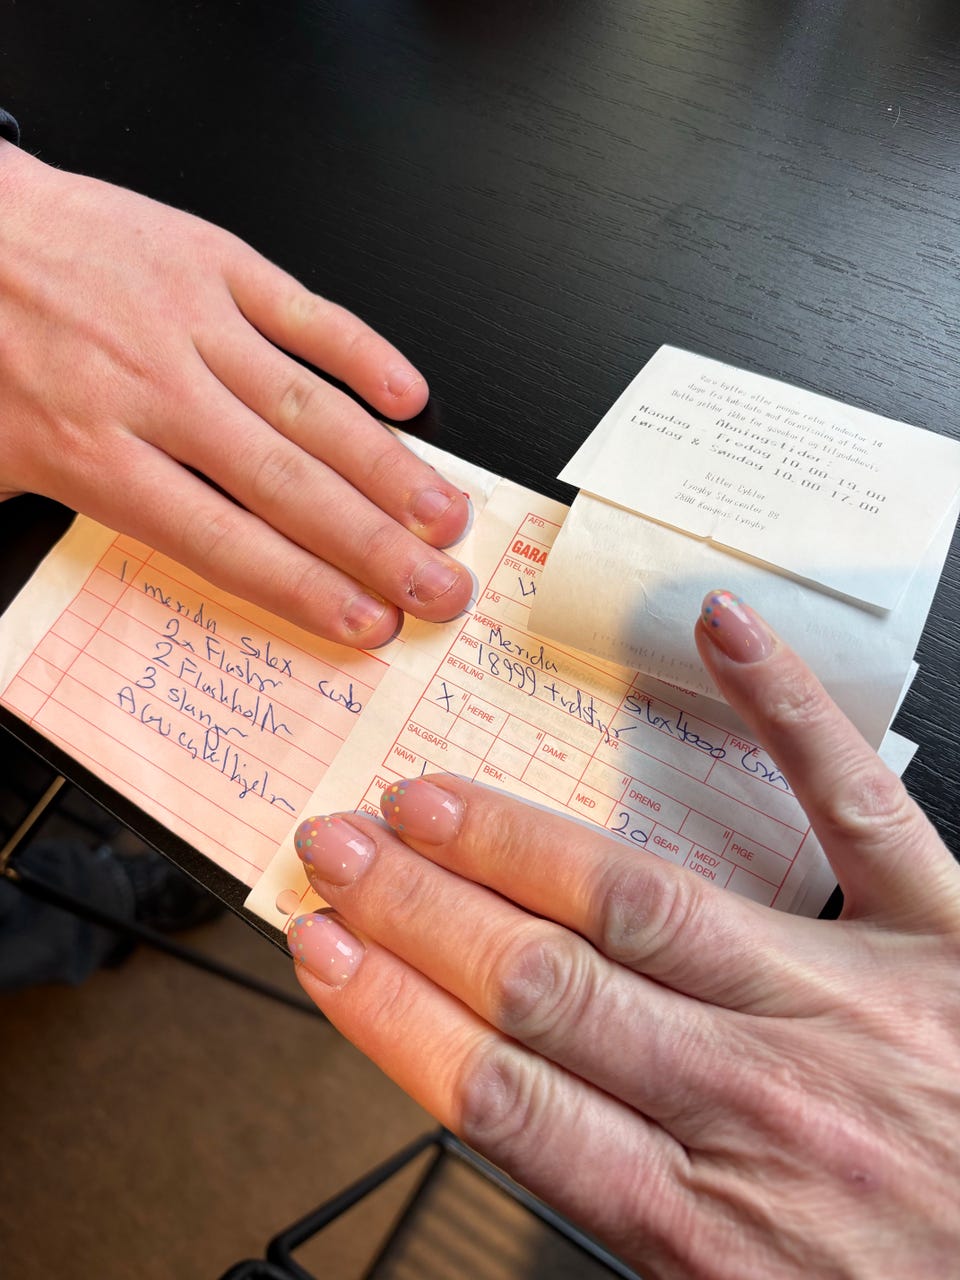 1 merida Silex
2x Flash
2 Flashholdr
3 slangr
AGU cykelhjelm
AFD.
GARA
STEL NR.
LÅS
MÆRKE Merida
TYPE Silex 4000
FARVE
PRIS 18999 KR.
BETALING
X
II HERRE
II DAME
II DRENG
II PIGE
SALGSAFD.
BEM.:
MED 20 GEAR
MED/
UDEN
NAVN
ADR.
Vare byttes eller penge retur indenfor 14
dage fra købsdato med forevisning af bon.
Dette gælder ikke for gavekort og tilgodebevis
Åbningstider:
Mandag - Fredag 10.00 19.00
Lørdag & Søndag 10.00 17.00
Ritter Cykler
Lyngby Storcenter 88
2800 Kongens Lyngby